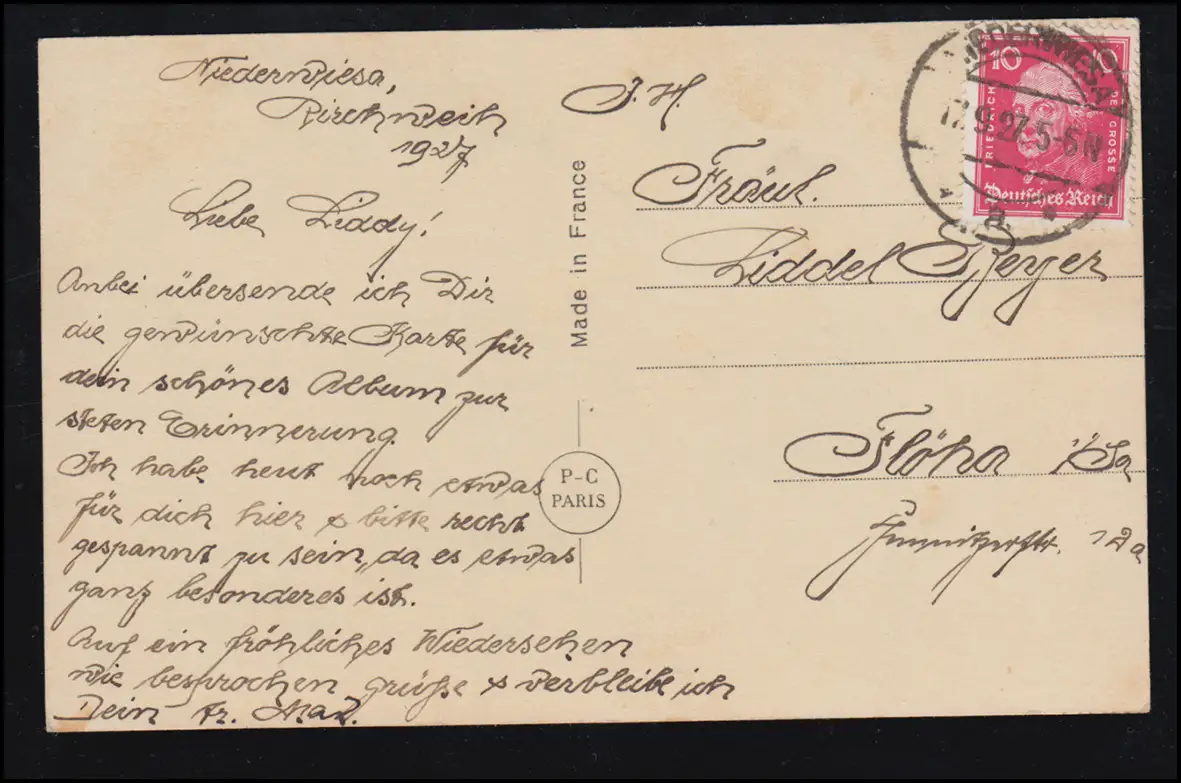 Niederwiesa,
Kirchweih
1927
Liebe Liddy!
Anbei übersende ich Dir
die gewünschte Karte für
dein schönes Album zur
steten Erinnerung.
Ich habe heut noch etwas
für dich hier & bitte recht
gespannt zu sein, da es etwas
ganz besonderes ist.
Auf ein fröhliches Wiedersehen
wie besprochen grüße & verbleibe ich
Dein fr. Max.
Made in France
P-C
PARIS
Fräul.
Liddel
Flöha i/Sa
12a
NIEDERWIESA
17.9.27.5-6N
a
10 10
FRIEDRICH DER GROSSE
Deutsches Reich